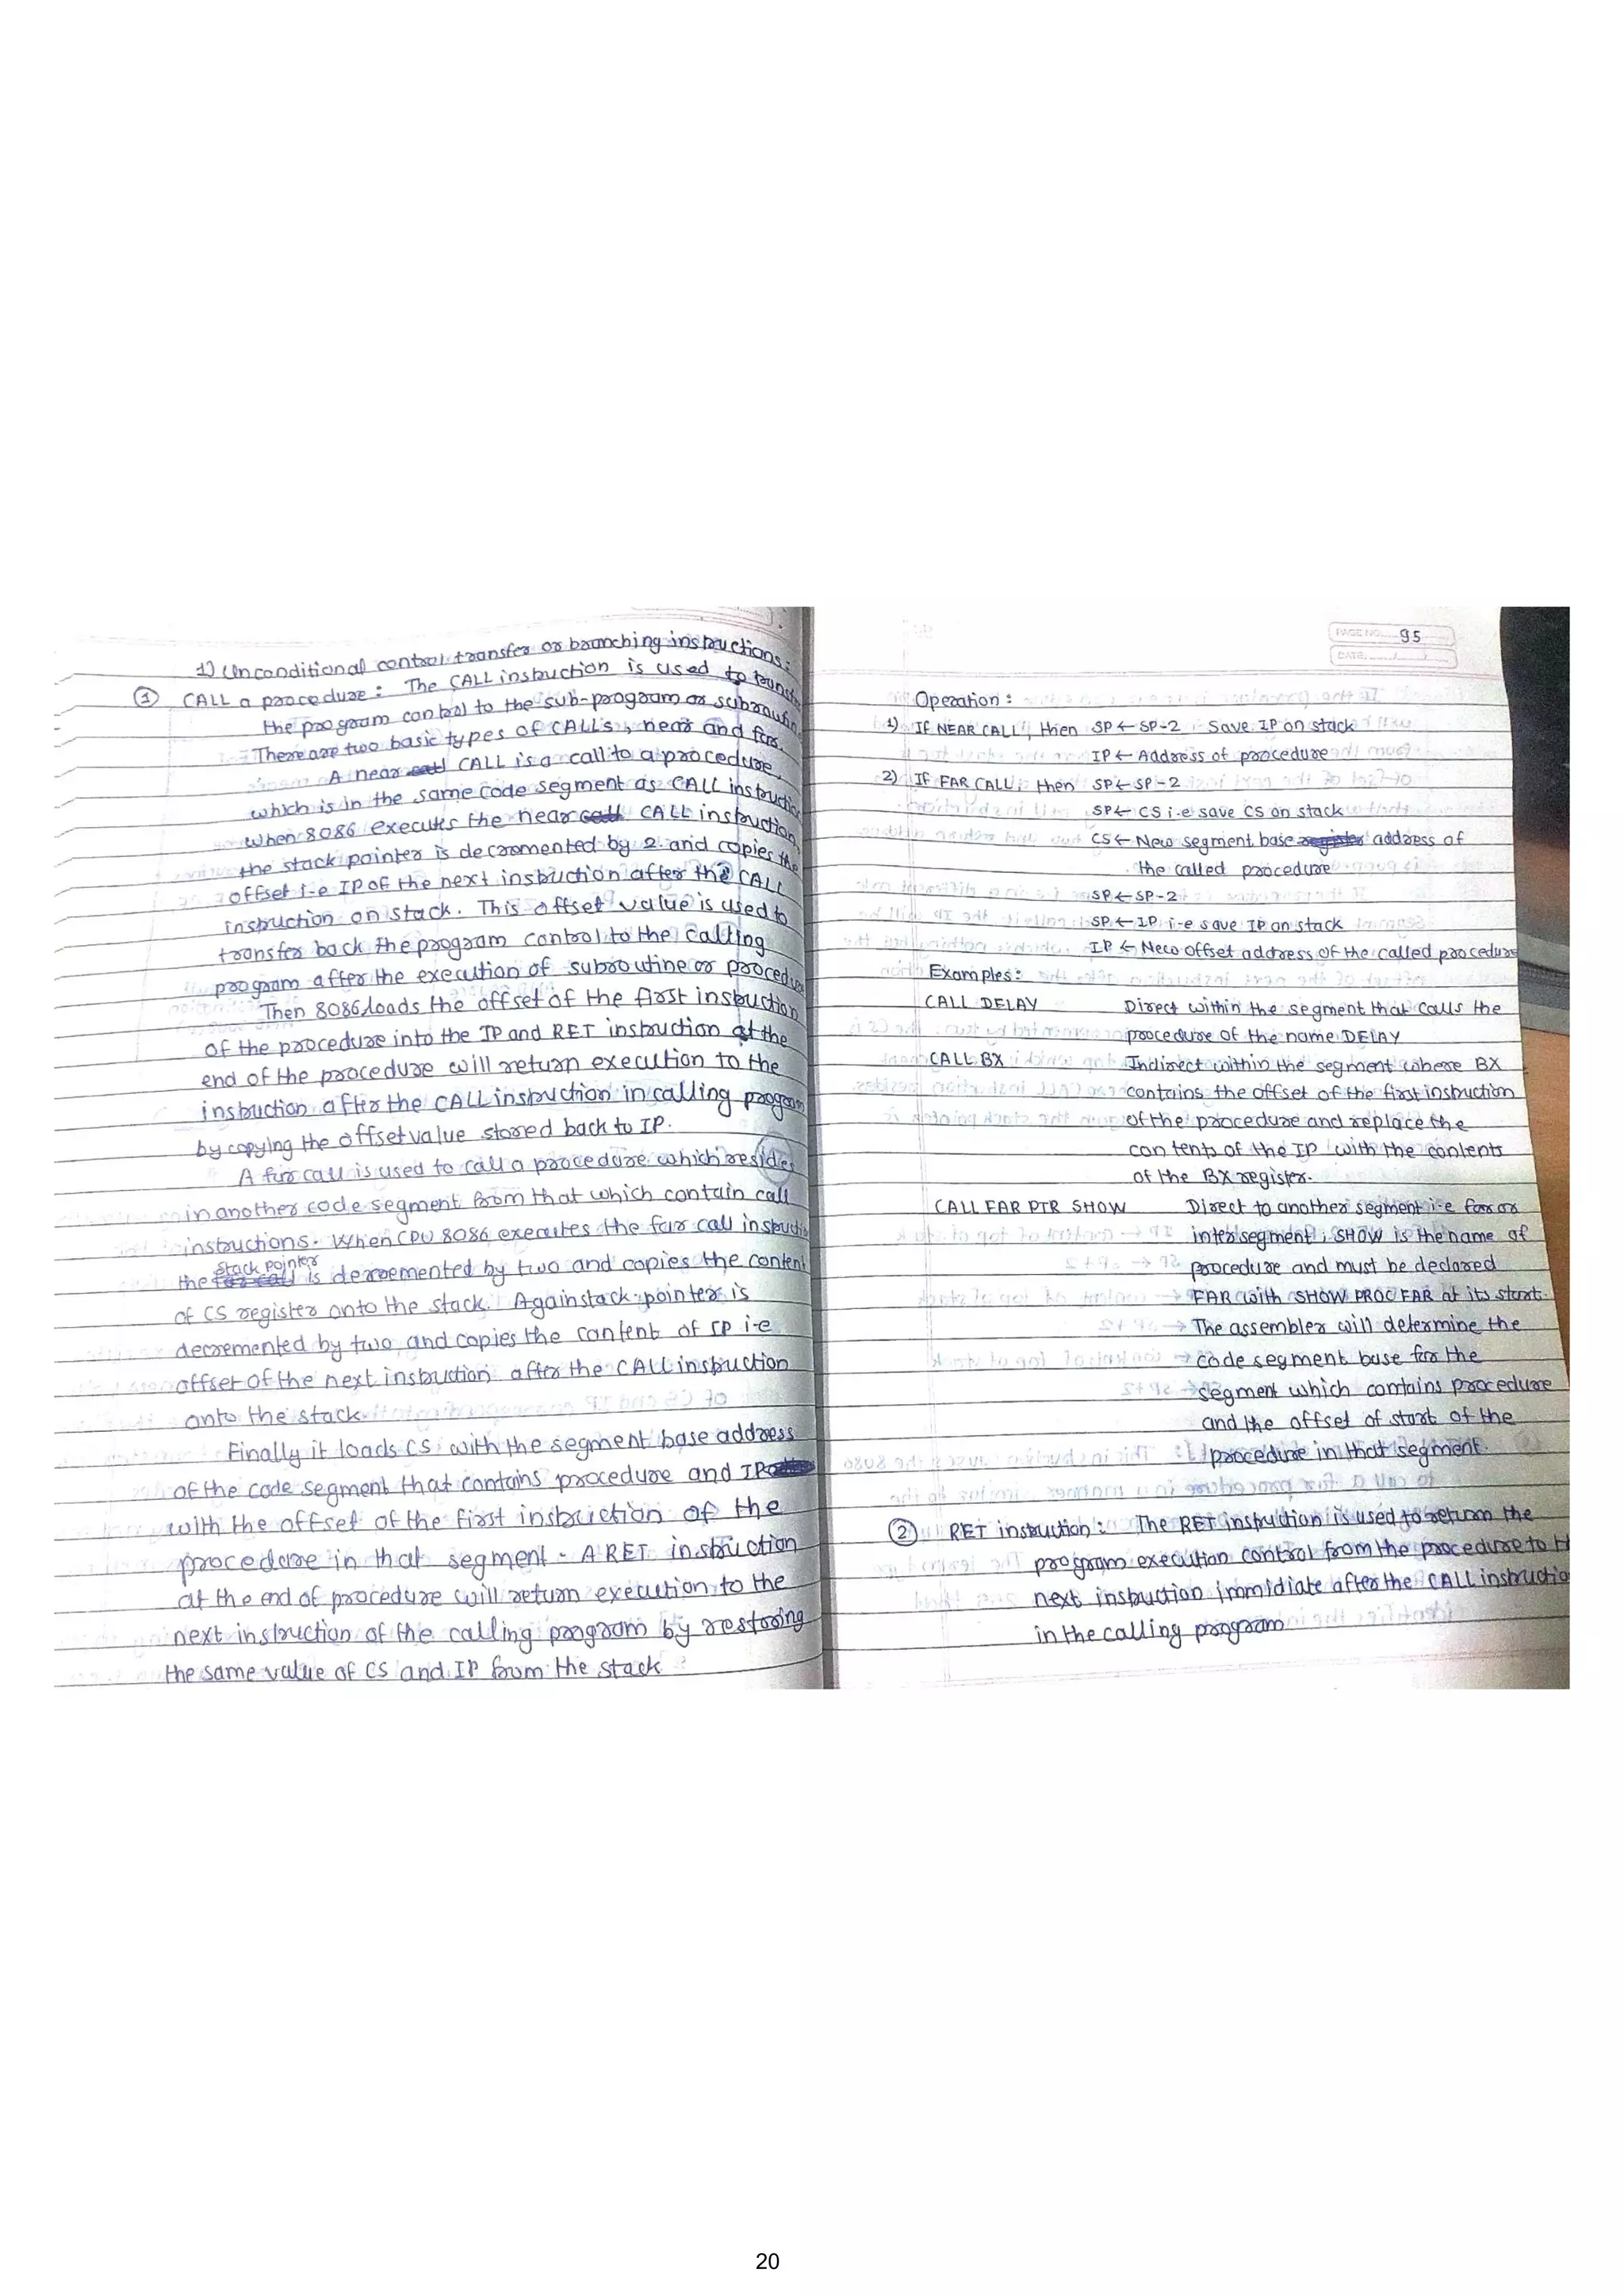 1) Unconditional control transfer or branching instructions:
① CALL a procedure : The CALL instruction is used to transfer
the program control to the sub-program or subroutine.
There are two basic types of CALL's, near and far.
A near CALL is a call to a procedure,
which is in the same code segment as CALL instruction
when 8086 executes the near CALL instruction,
the stack pointer is decremented by 2 and copies the
offset i-e IP of the next instruction after the CALL
instruction on stack. This offset value is used to
transfer back the program control to the calling
program after the execution of subroutine or procedure
Then 8086 loads the offset of the first instruction
of the procedure into the IP and RET instruction at the
end of the procedure will return execution to the
instruction after the CALL instruction in calling program
by copying the offset value stored back to IP.
A far call is used to call a procedure which resides
in another code segment from that which contain call
instructions. When CPU 8086 executes the far call instruction
the stack pointer is decremented by two and copies the content
of CS register onto the stack. Again stack pointer is
decremented by two, and copies the content of IP i-e
offset of the next instruction after the CALL instruction
onto the stack.
Finally it loads CS with the segment base address
of the code segment that contains procedure and IP
with the offset of the first instruction of the
procedure in that segment. A RET instruction
at the end of procedure will return execution to the
next instruction of the calling program by restoring
the same value of CS and IP from the stack
PAGE NO. 95
DATE: / /
Operation :
1) If NEAR CALL, then SP ← SP-2 Save IP on stack
IP ← Address of procedure
2) IF FAR CALL, then SP ← SP-2
SP ← CS i.e save CS on stack
CS ← New segment base address of
the called procedure
SP ← SP-2
SP ← IP i-e save IP on stack
IP ← New offset address of the called procedure
Examples :
CALL DELAY Direct within the segment that calls the
procedure of the name DELAY
CALL BX Indirect within the segment where BX
contains the offset of the first instruction
of the procedure and replace the
contents of the IP with the contents
of the BX register.
CALL FAR PTR SHOW Direct to another segment i-e far or
intersegment, SHOW is the name of
procedure and must be declared
FAR with SHOW PROC FAR at its start.
The assembler will determine the
code segment base for the
segment which contains procedure
and the offset of start of the
procedure in that segment.
② RET instruction : The RET instruction is used to return the
program execution control from the procedure to the
next instruction immidiate after the CALL instruction
in the calling program
20